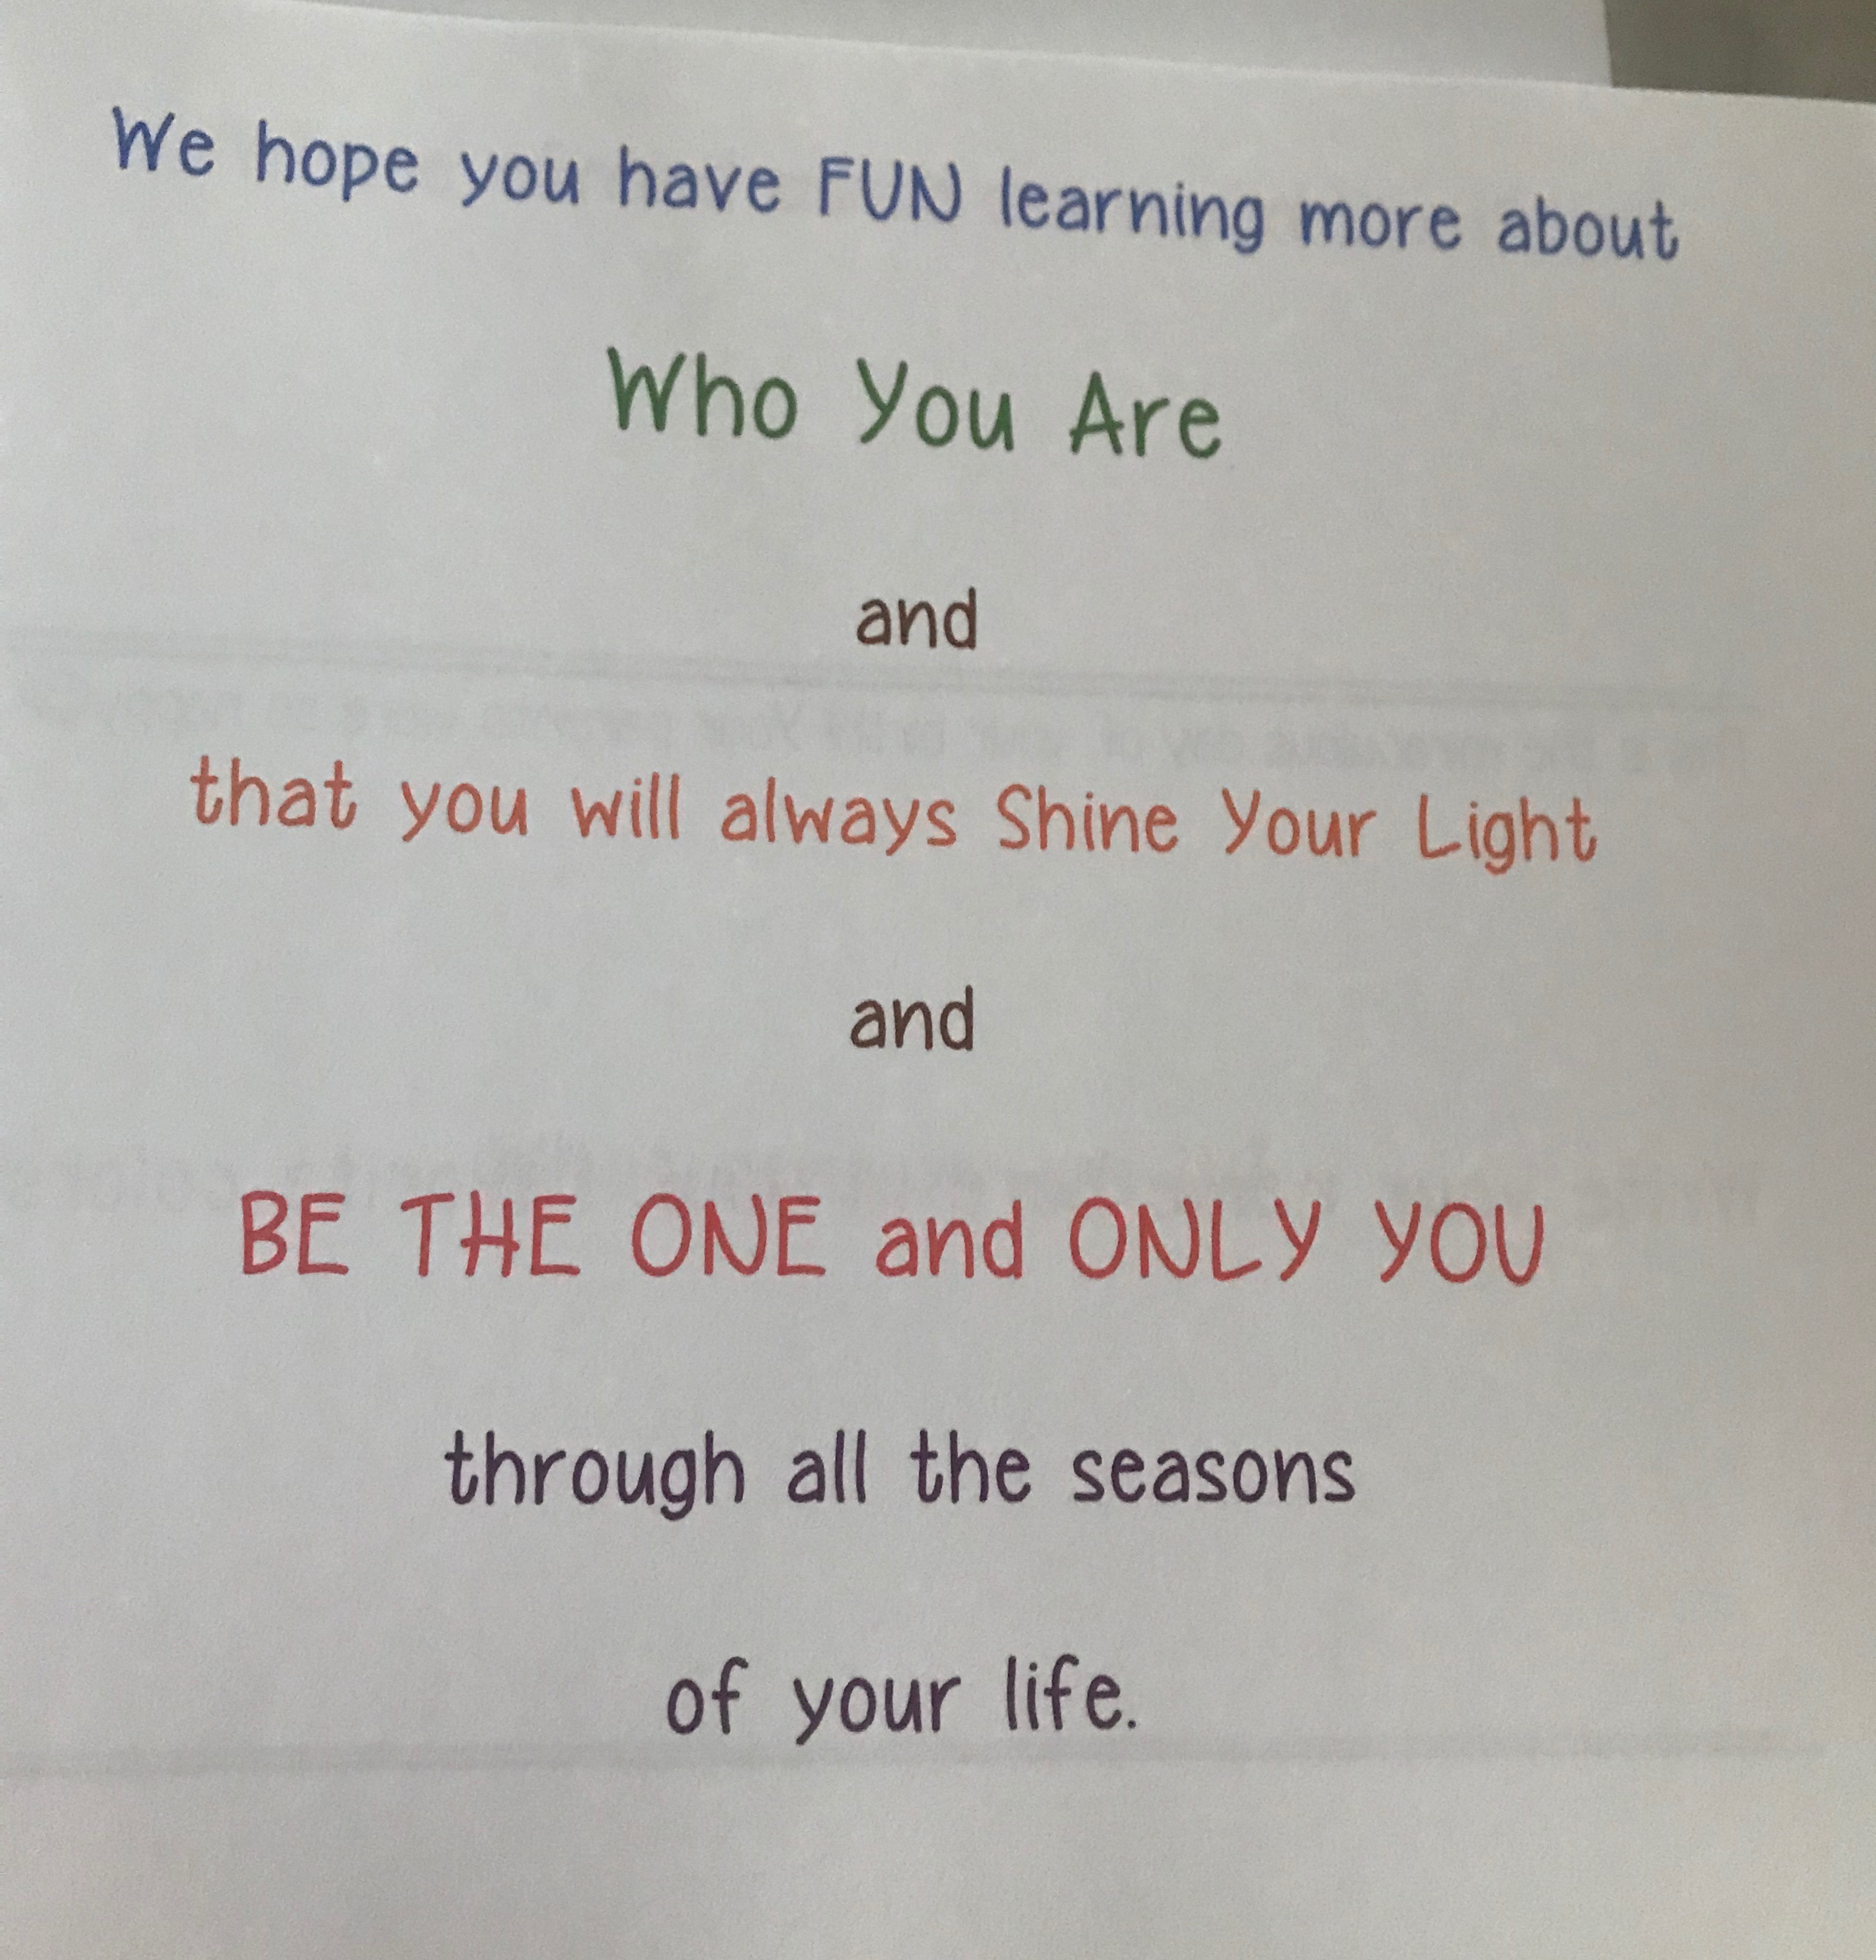 We hope you have FUN learning more about
Who You Are
and
that you will always Shine Your Light
and
BE THE ONE and ONLY YOU
through all the seasons
of your life.